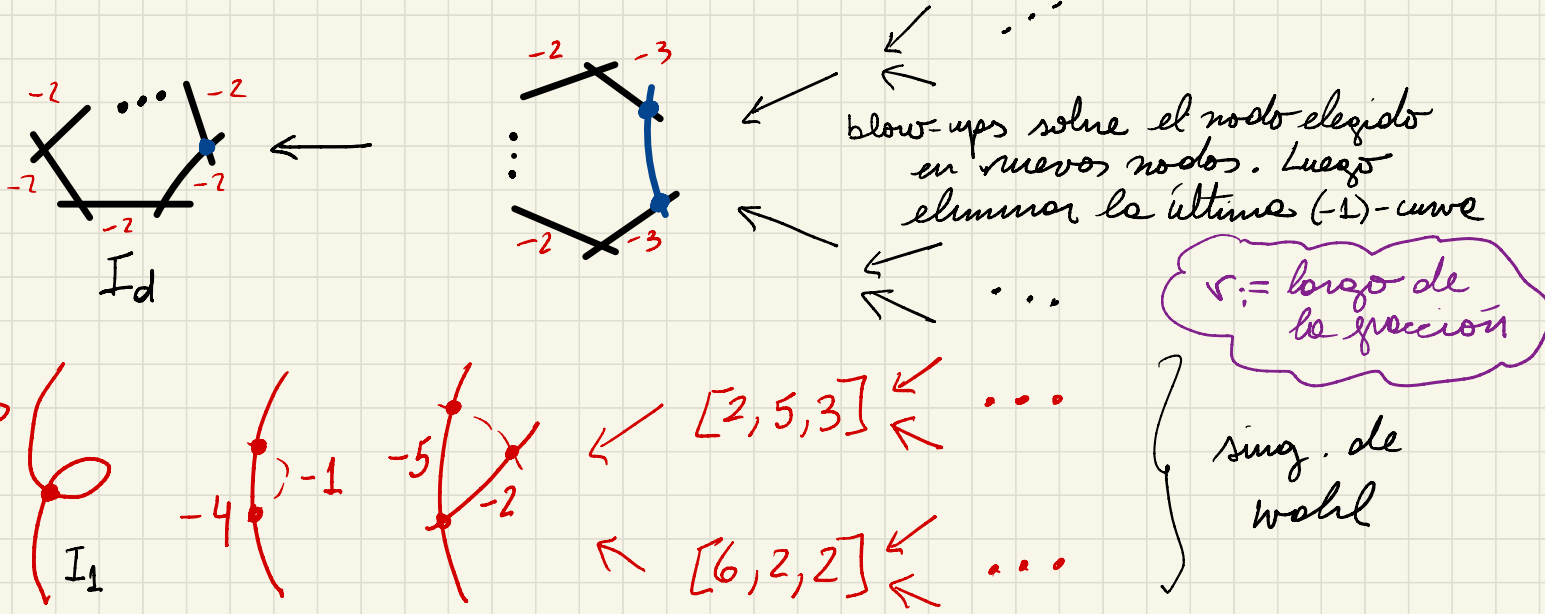 -2
-2
-2
-2
-2
I_d
-2
-3
-2
-3
...
blow-ups sobre el nodo elegido
en nuevos nodos. Luego
eliminar la última (-1)-curva
...
r:= largo de
la fracción
I_1
-4
-1
-5
-2
[2,5,3]
...
[6,2,2]
...
sing. de
Wahl